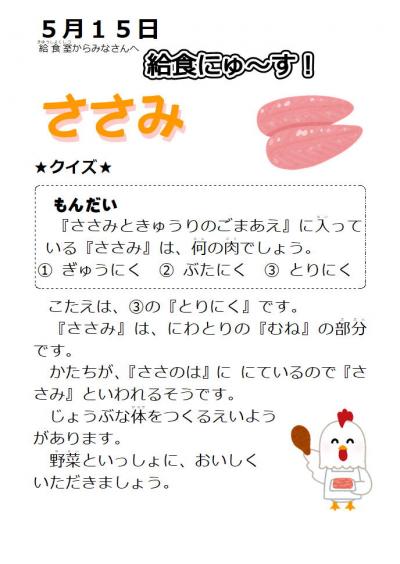 ５月１５日
給食室からみなさんへ
給食にゅ～す！
ささみ
★クイズ★
もんだい
『ささみときゅうりのごまあえ』に入って
いる『ささみ』は、何の肉でしょう。
① ぎゅうにく ② ぶたにく ③ とりにく
こたえは、③の『とりにく』です。
『ささみ』は、にわとりの『むね』の部分
です。
かたちが、『ささのは』に にているので『さ
さみ』といわれるそうです。
じょうぶな体をつくるえいよう
があります。
野菜といっしょに、おいしく
いただきましょう。